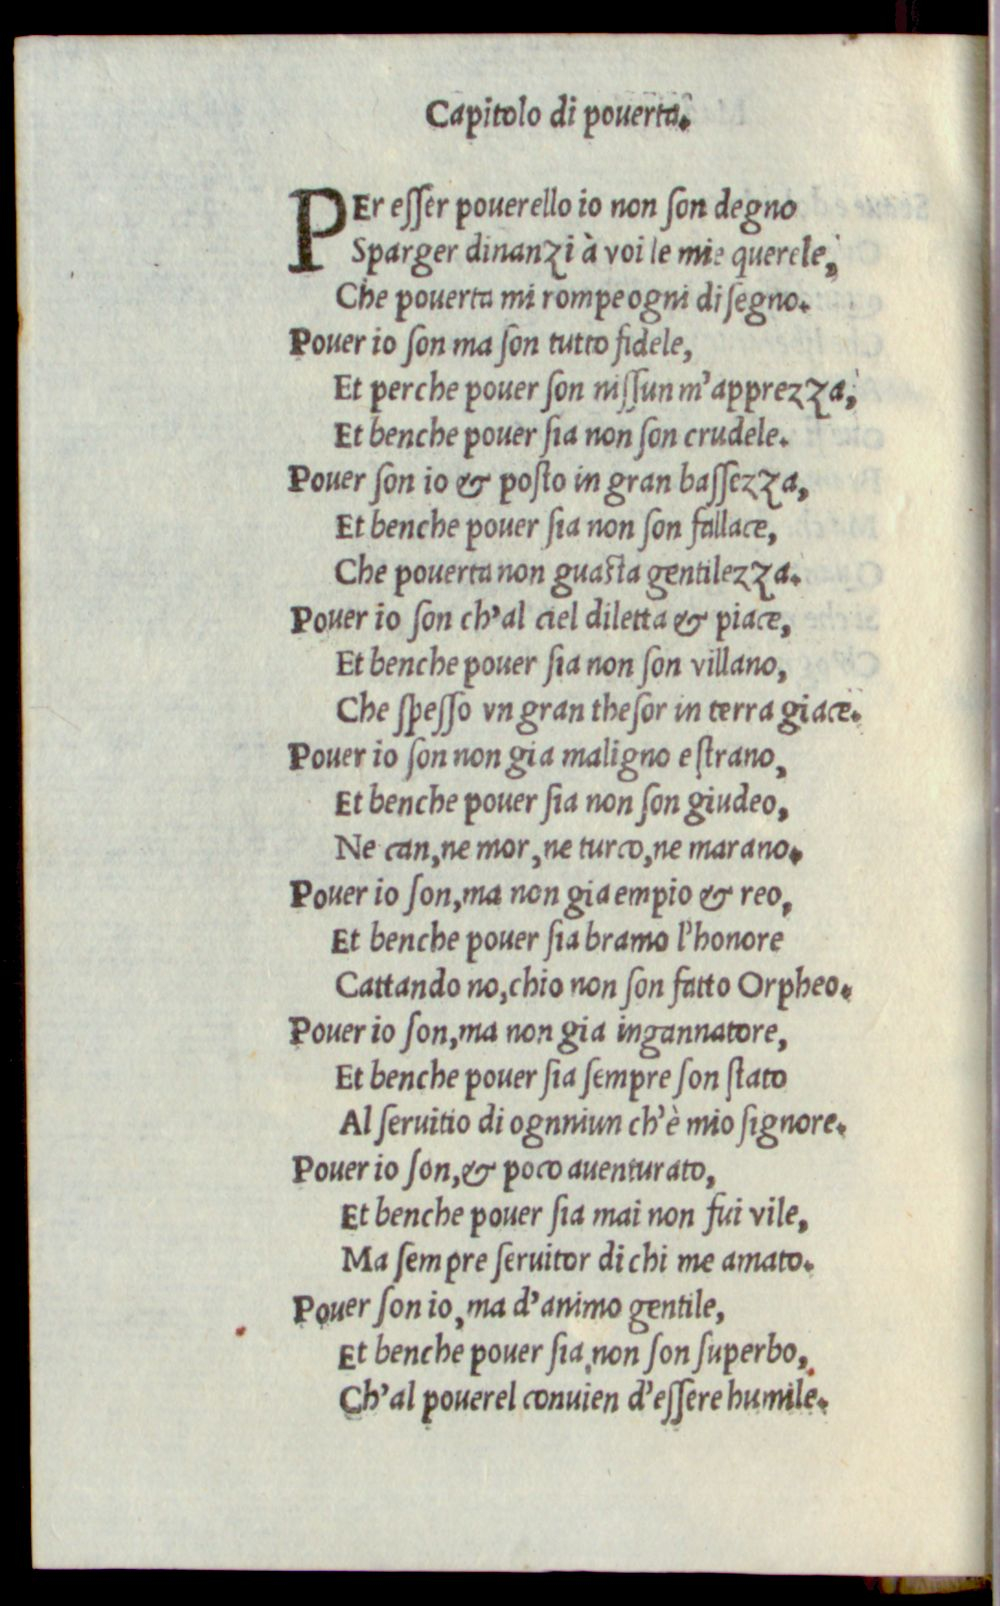 Capitolo di pouerta.
PEr eſſer pouerello io non ſon degno
Sparger dinanzi à voi le mie querele,
Che pouerta mi rompe ogni diſegno.
Pouer io ſon ma ſon tutto fidele,
Et perche pouer ſon niſſun m'apprezza,
Et benche pouer ſia non ſon crudele.
Pouer ſon io & poſto in gran baſſezza,
Et benche pouer ſia non ſon fallace,
Che pouerta non guaſta gentilezza.
Pouer io ſon ch'al ciel diletta & piace,
Et benche pouer ſia non ſon villano,
Che ſpeſſo vn gran theſor in terra giace.
Pouer io ſon non gia maligno e ſtrano,
Et benche pouer ſia non ſon giudeo,
Ne can, ne mor, ne turco, ne marano.
Pouer io ſon, ma non gia empio & reo,
Et benche pouer ſia bramo l'honore
Cattando no, chio non ſon fatto Orpheo.
Pouer io ſon, ma non gia ingannatore,
Et benche pouer ſia ſempre ſon ſtato
Al ſeruitio di ognniun ch'è mio ſignore.
Pouer io ſon, & poco auenturato,
Et benche pouer ſia mai non fui vile,
Ma ſempre ſeruitor di chi me amato.
Pouer ſon io, ma d'animo gentile,
Et benche pouer ſia, non ſon ſuperbo,
Ch'al pouerel conuien d'eſſere humile.